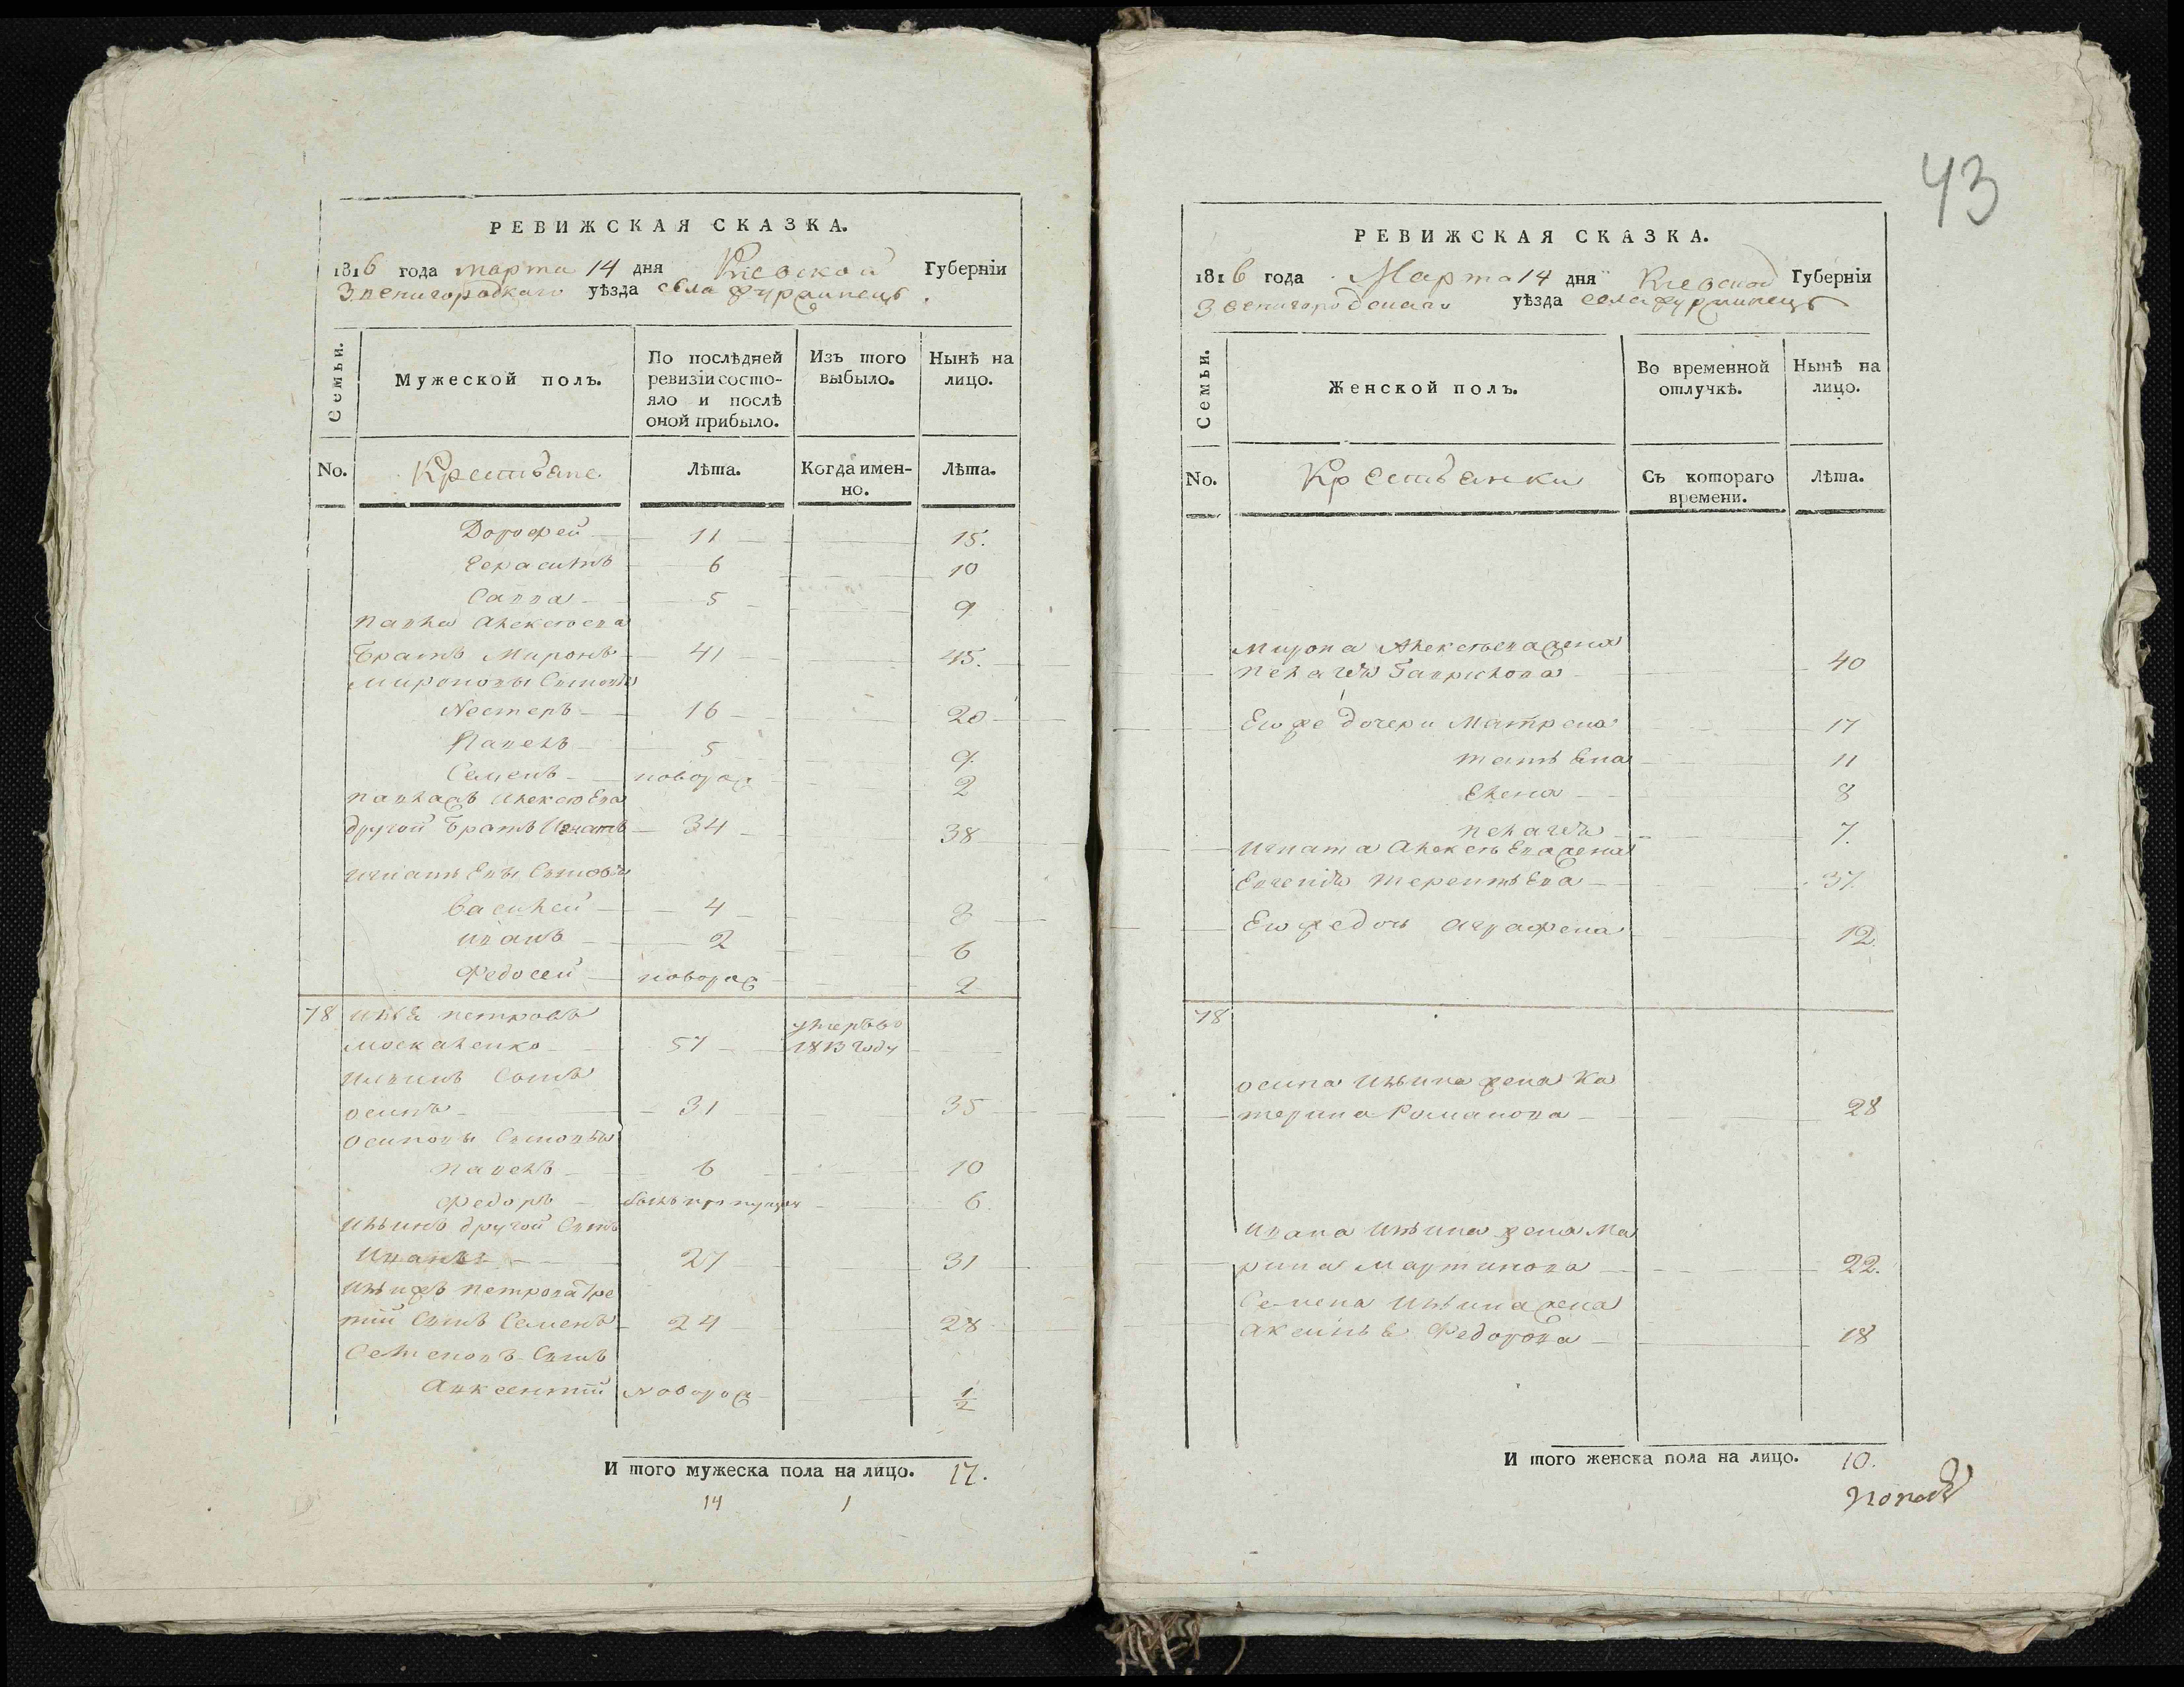 43
РЕВИЖСКАЯ СКАЗКА.
1816 года марта 14 дня Киевской Губерніи
Звенигородскаго уѣзда села
Семьи.
Мужеской полъ.
По послѣдней ревизіи состояло и послѣ оной прибыло.
Изъ того выбыло.
Нынѣ на лицо.
No.
Крестьяне
Лѣта.
Когда именно.
Лѣта.
Дорофей 11 15.
Герасимъ 6 10
Савва 5 9
Павла Алексѣева
Братъ Миронъ 41 45.
Мироновы Сыновья
Нестеръ 16 20
Павелъ 5 9.
Семенъ новорож 2
Алексѣева
другой братъ Игнатъ 34 38
Игнатьевы Сыновья
Василей 4 8
Иванъ 2 6
Федосей новорож 2
78 Илья Петровъ
Москаленко 57 умеръ въ 1813 году
Ильинъ Сынъ
осипъ 31 35
осиповы Сыновья
Павелъ 6 10
Федоръ былъ пропущен 6.
Ильинъ другой Сынъ
Иванъ 27 31
Петрова Тре
тій Сынъ Семенъ 24 28
Семеновъ Сынъ
Авксентій новорож 1/2
И того мужеска пола на лицо. 17.
14 1
РЕВИЖСКАЯ СКАЗКА.
1816 года Марта 14 дня Киевской Губерніи
Звенигородскаго уѣзда села
Семьи.
Женской полъ.
Во временной отлучкѣ.
Нынѣ на лицо.
No.
Крестьянки
Съ котораго времени.
Лѣта.
Мирона Алексѣева жена
Пелагѣя Гаврилова 40
Его же дочери Матрена 17
татьяна 11
Елена 8
Пелагѣя 7.
Игната Алексѣева жена
Евгенія Терентьева 37.
Его же дочь Аграфена 12.
78
осипа Ильина жена Ка
терина Романова 28
Ивана Ильина жена Ма
рина Мартинова 22.
Семена Ильина жена
Аксинья Федорова 18
И того женска пола на лицо. 10.